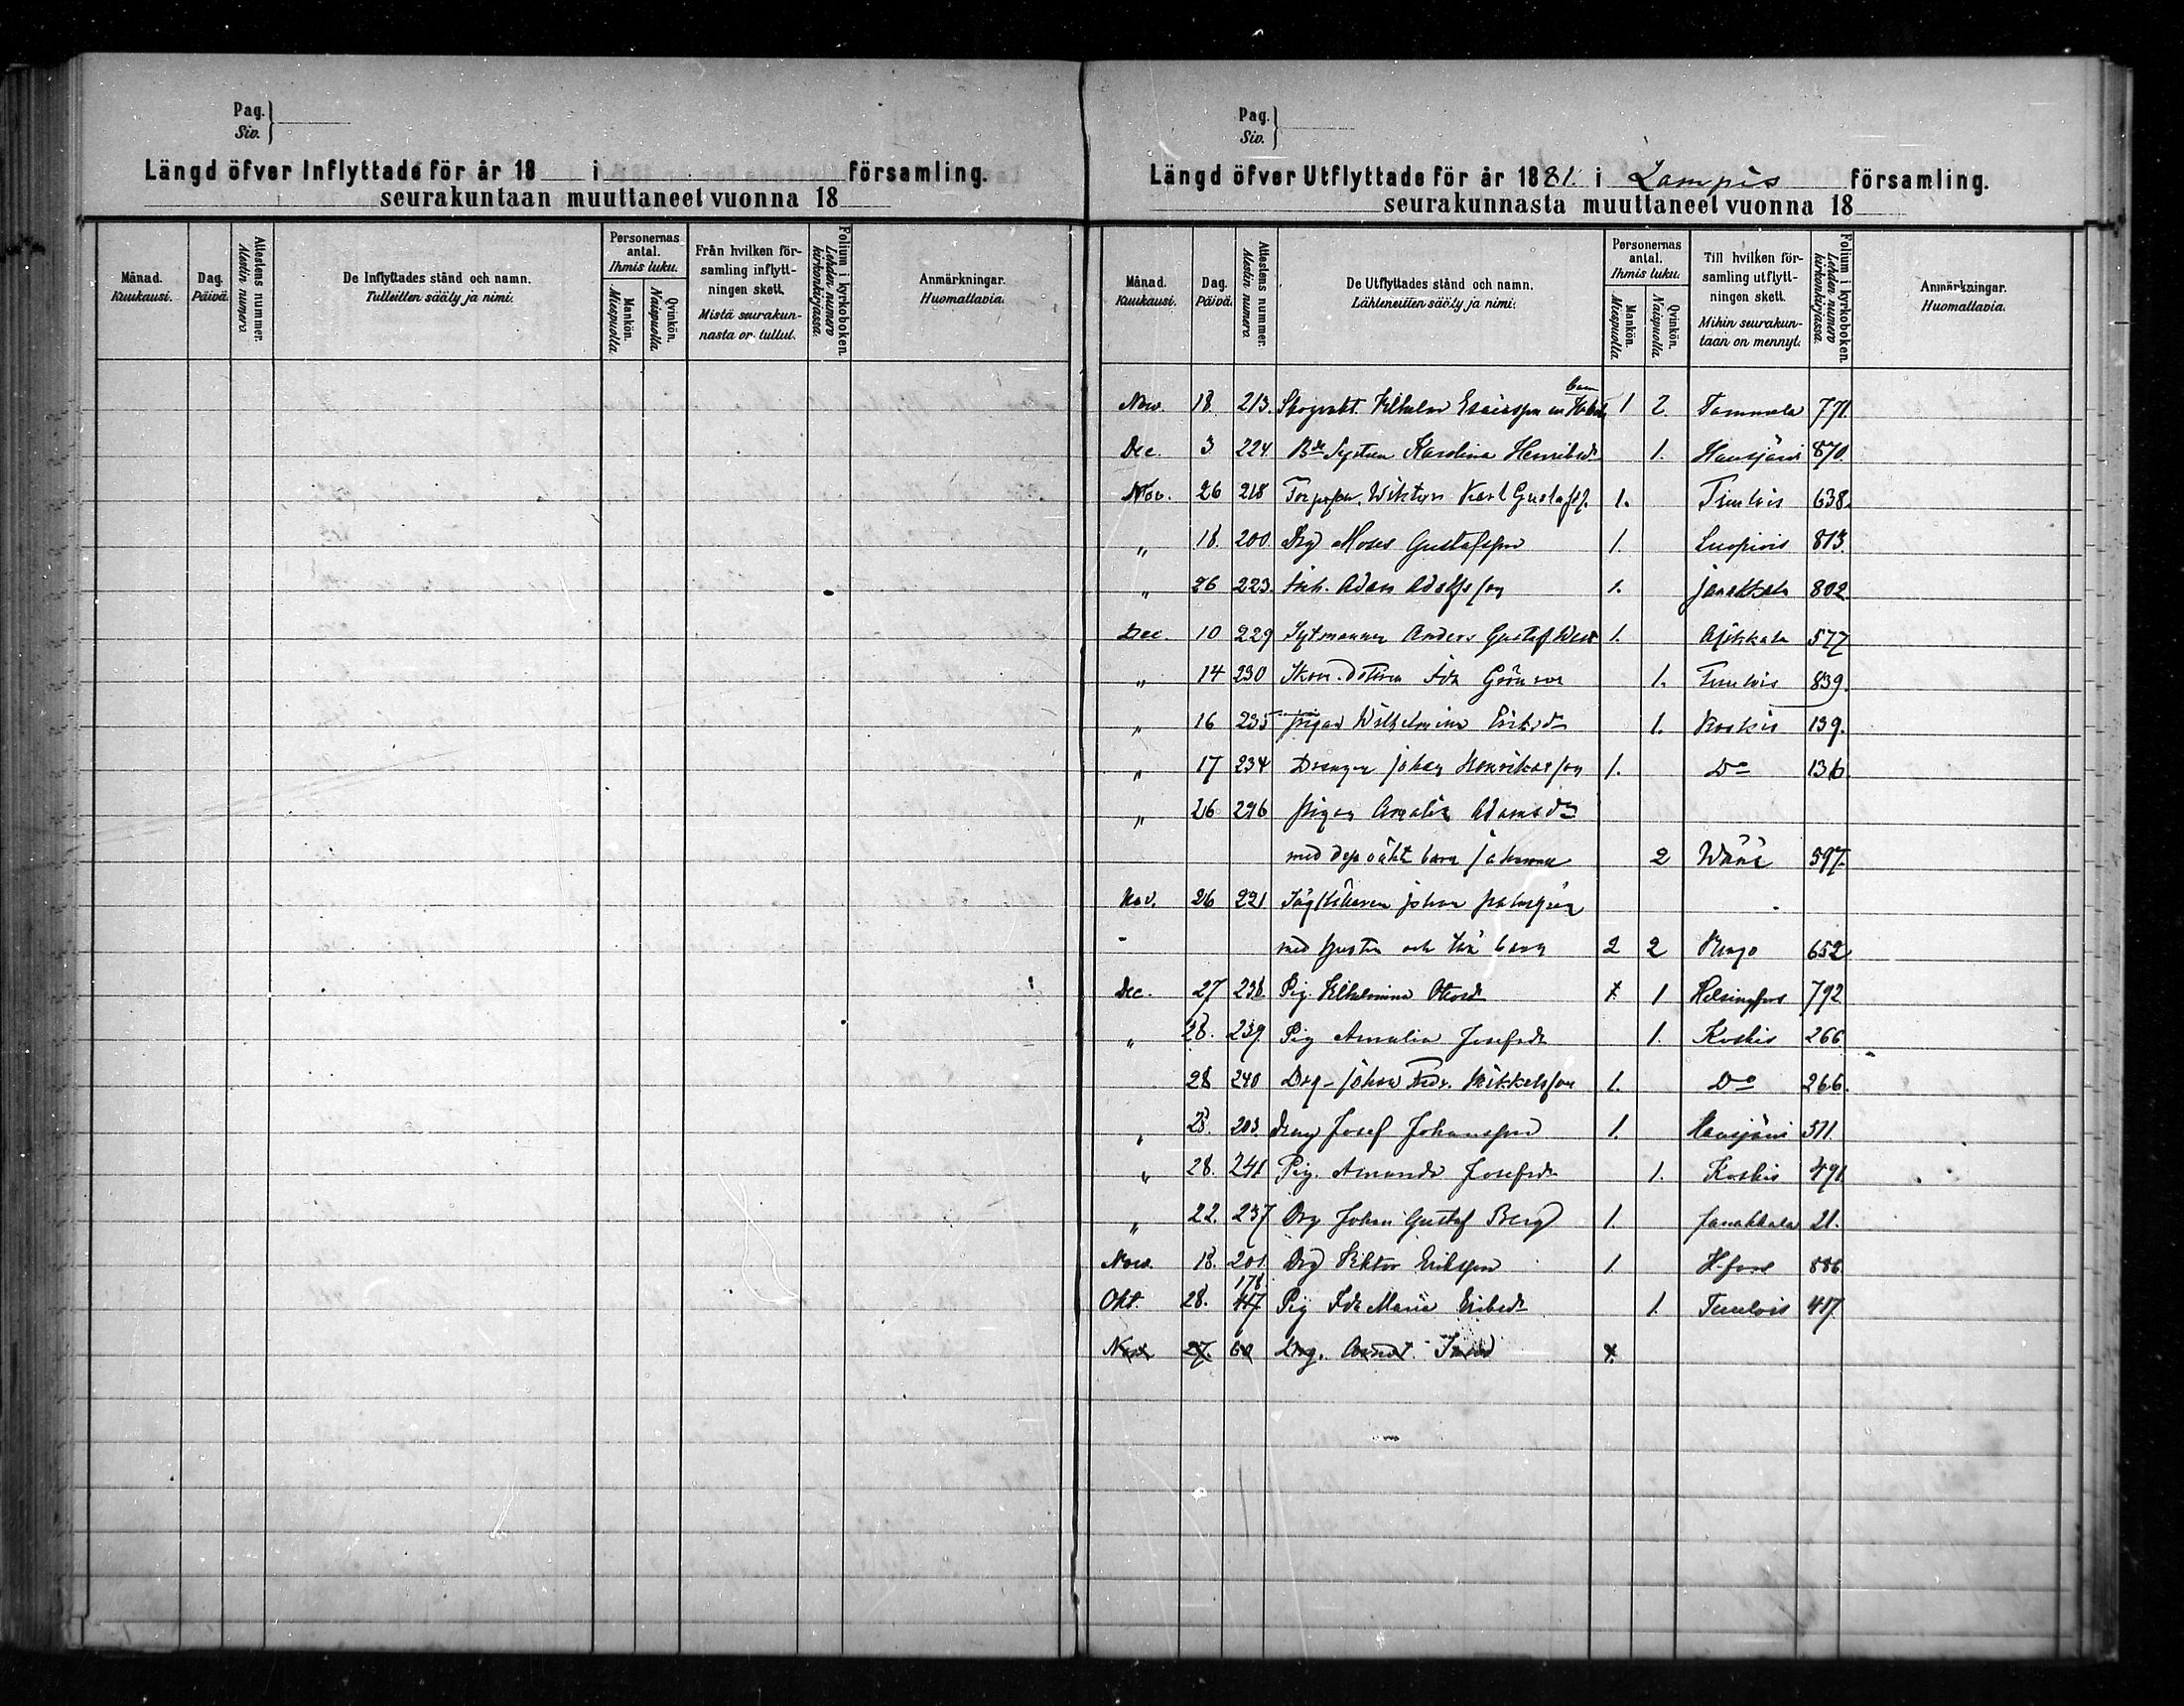 Pag.
Siv.
Längd öfver Inflyttade för år 18 i församling.
seurakuntaan muuttaneet vuonna 18
Månad.
Kuukausi.
Dag.
Päivä.
Attestens nummer.
Alestin numero
De Inflyttades stånd och namn.
Tulleitten sääty ja nimi.
Personernas antal.
Ihmis luku.
Mankön.
Miespuolla
Qvinkön.
Naispuolla
Från hvilken för-
samling inflytt-
ningen skett.
Mistä seurakun-
nasta on tullut.
Folium i kyrkoboken.
Lehden numero
kirkonkirjassa.
Anmärkningar.
Huomattavia.
Pag.
Siv.
Längd öfver Utflyttade för år 1881. i Lampis församling.
seurakunnasta muuttaneet vuonna 18
Månad.
Kuukausi.
Dag.
Päivä.
Attestens nummer.
Alestin numero
De Utflyttades stånd och namn.
Lähteneitten sääty ja nimi.
Personernas antal.
Ihmis luku.
Mankön.
Miespuolla
Qvinkön.
Naispuolla
Till hvilken för-
samling utflytt-
ningen skett.
Mihin seurakun-
taan on mennyt.
Folium i kyrkoboken.
Lehden numero
kirkonkirjassa.
Anmärkningar.
Huomattavia.
Nov. 18 213. Vilhelm Esaiasson 1 2. Tammela 771.
Dec. 3 224 Karolina Henriksdr 1. Hausjärvi 870.
Nov. 26 218 Wiktor Karl Gustafss. 1. Tuulois 638.
„ 18. 200. Drg Moses Gustafsson 1. Luopiois 813
„ 26 223. Adam Adolfsson 1. Janakkala 802.
Dec. 10 229 Anders Gustaf 1. Asikkala 577
„ 14 230 Ida 1. Tuulois 839.
„ 16 235 Pigan Wilhelmina Eriksdr 1. Koskis 139.
„ 17 234 Drengen Johan Henriksson 1. Do 136.
„ 26 296 Pigan Amalia Adamsdr
med dess oäkta barn Johanna 2 Wånå 597.
Nov. 26 221 Johan
med hustru och två barn 2 2 652
Dec. 27 238 Pig. Vilhelmina 1 Helsingfors 792
„ 28. 239. Pig Amalia Josefsdr 1. Koskis 266.
28 240 Drg Johan Fredr. Mikkelsson 1. Do 266.
„ 28. 203. dreng Josef Johansson 1. Hausjärvi 511.
„ 28. 241 Pig. Amanda Josefsdr 1. Koskis 491
„ 22. 237 Drg Johan Gustaf Berg 1. Janakkala 21.
Nov. 18. 201. Drg Viktor Eriksson 1. H-fors 886
178
Okt. 28. Pig Ida Maria Eriksdr 1. Tuulois 417
Nov 27. 60 Drg.